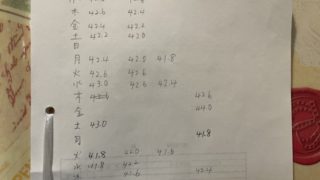 木 42.6 42.4
金 42.4 42.2
土 42.2 42.0
日
月 42.4 42.0 41.8
火 42.6 42.6
水 43.0 42.6 42.4
木 42.6 42.6
金 44.0
土 43.0
日 41.8
火 41.8 42.0
水 41.8 42.2
42.6 42.4